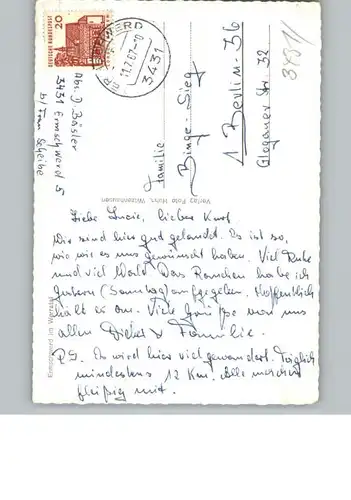 DEUTSCHE BUNDESPOST
20
3431
Abs. D. Bäsler
3431 Ermschwerd 5
b/ Frau Scheibe
Familie
Binge-Sieg
1 Berlin-36
Glogauer Str 32
Verlag Foto Hühn, Witzenhausen
Ermschwerd im Werratal
Liebe Lucie, lieber Kurt
Wir sind hier gut gelandet. Es ist so,
wie wir es uns gewünscht haben. Viel Ruhe
und viel Wald. Das Rauchen habe ich
gestern (Sonntag) aufgegeben. Hoffentlich
halte es an. Viele Grüße von uns
allen Dieter & Familie.
PS. Es wird hier viel gewandert. Täglich
mindestens 12 Km. Alle machen
fleißig mit.